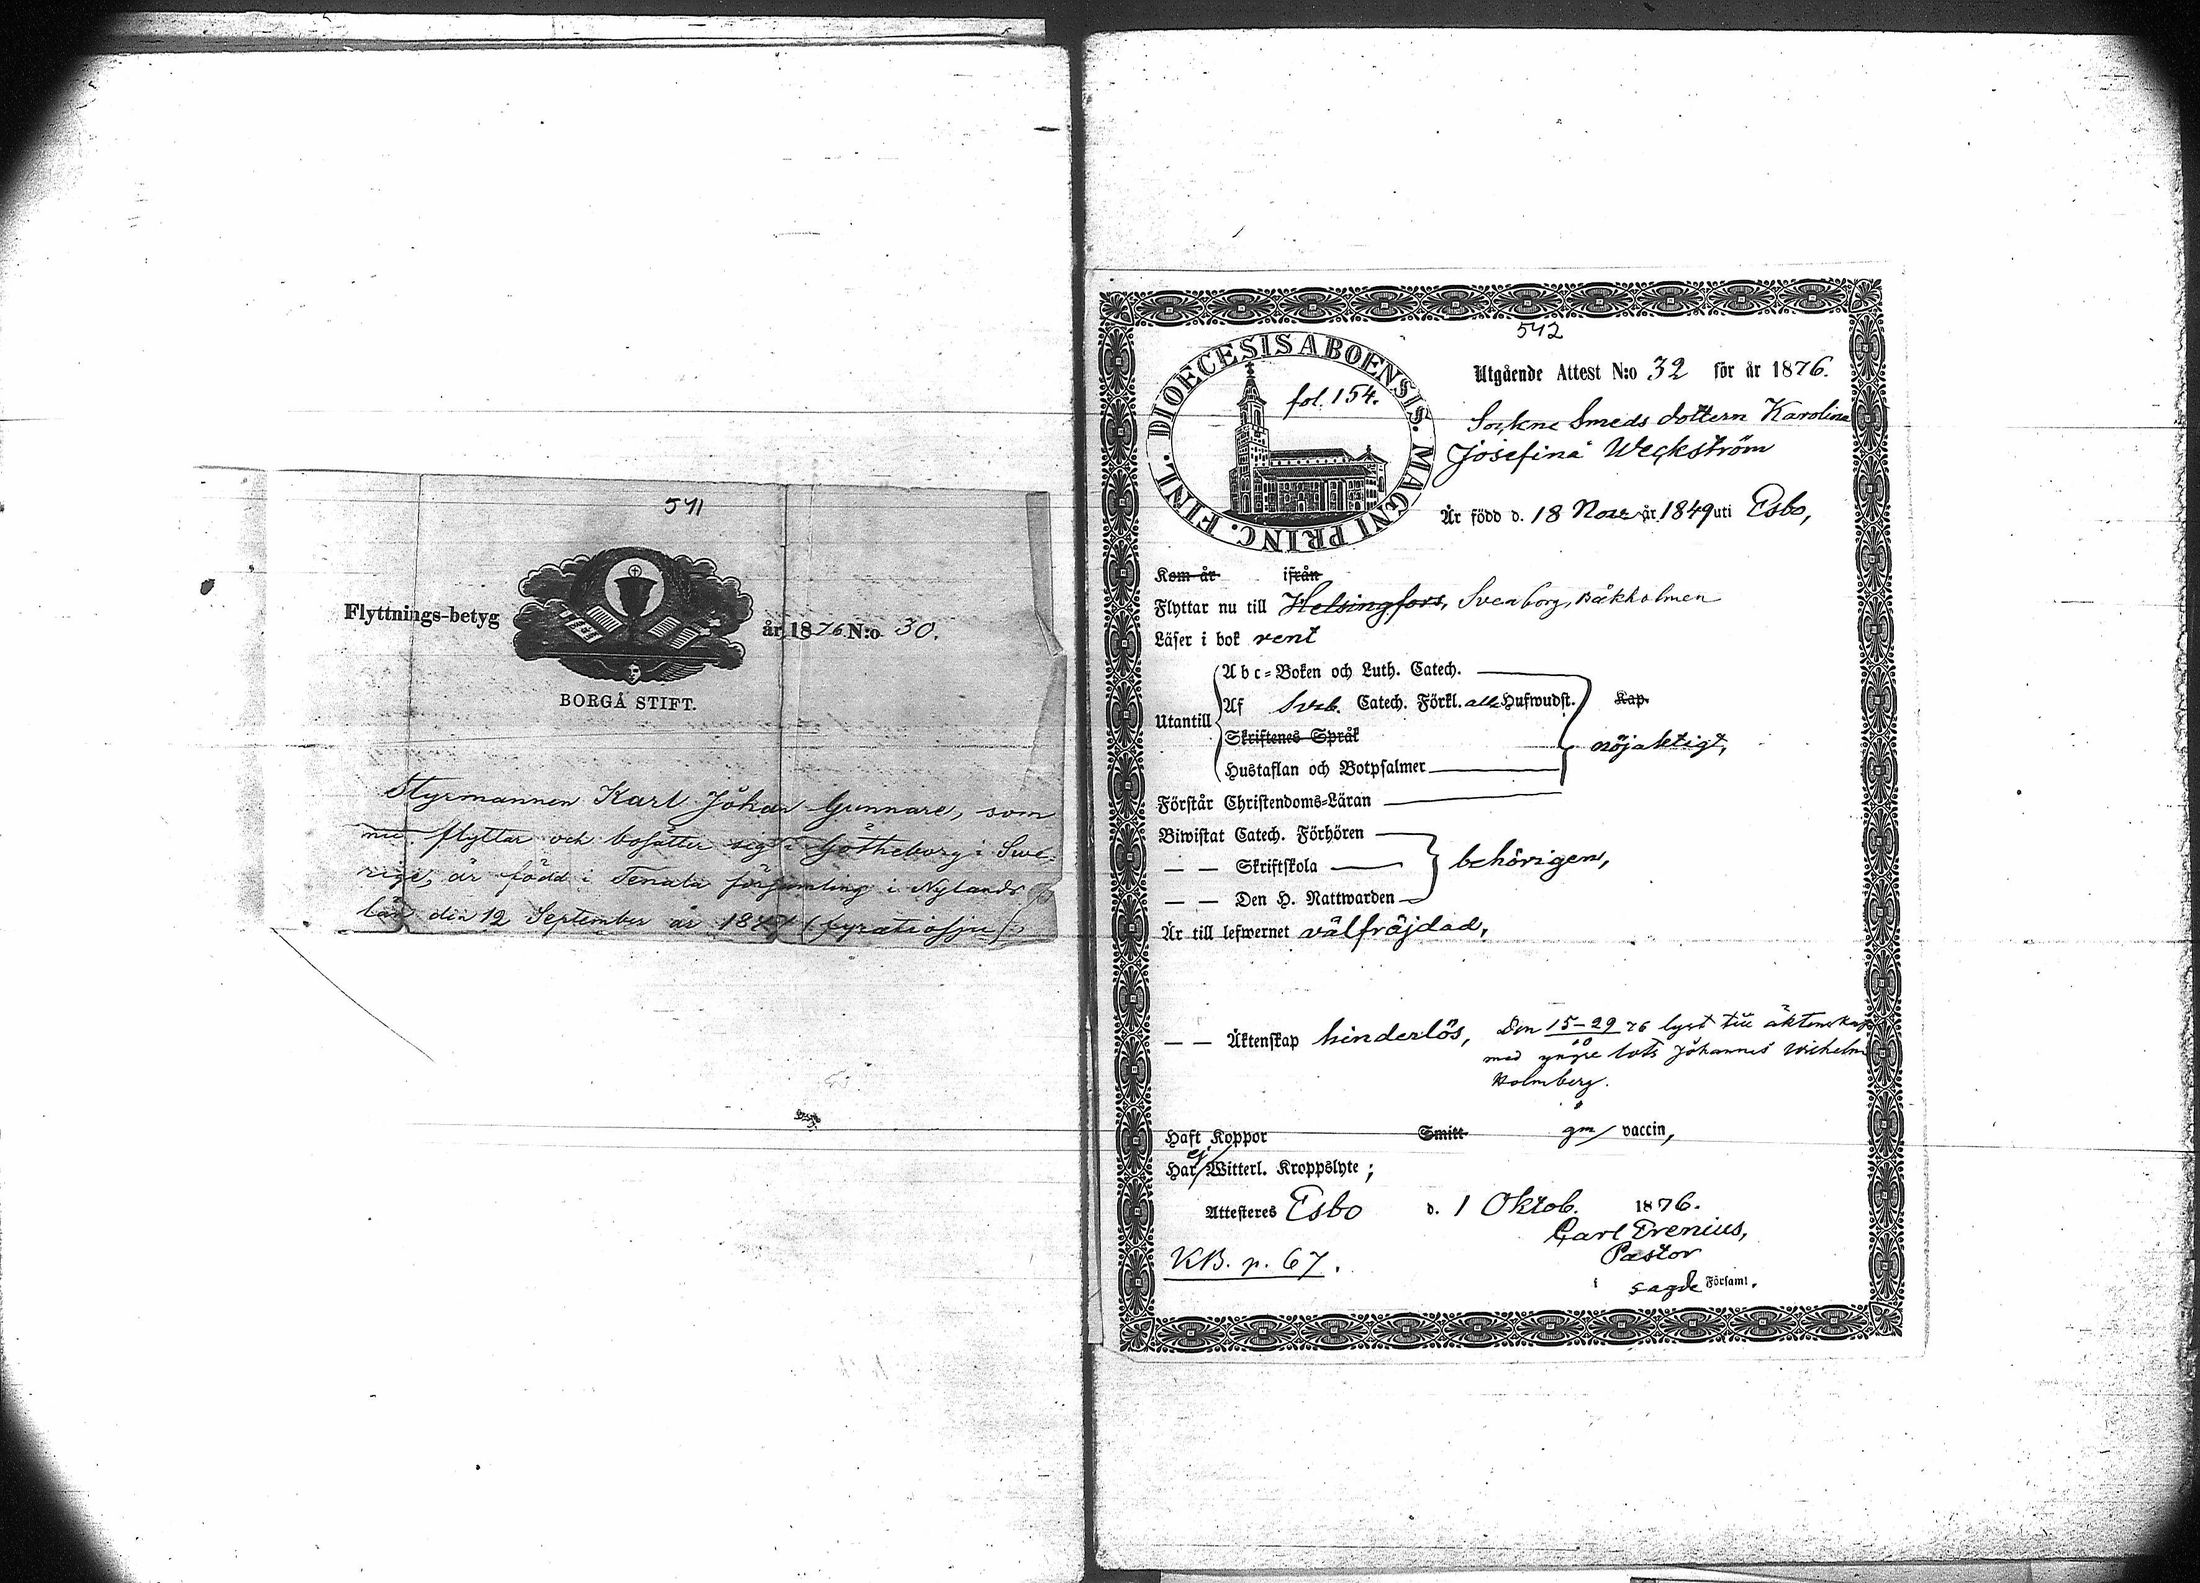 541
Flyttnings-betyg år 1876 N:o 30.
BORGÅ STIFT.
Styrmannen Karl Johan Gunnare, som
nu flyttar och bosätter sig i Götheborg i Sve-
rige, är född i Tenala församling i Nylands
län den 12 September år 1847 (fyratiosju),
542
DIOECESIS ABOENSIS. MAGNI PRINC. FINL.
fol. 154.
Utgående Attest N:o 32 för år 1876.
Sockne Smeds dottern Karolina
Josefina Weckström
Är född d. 18 Nov år 1849 uti Esbo,
Kom år ifrån
Flyttar nu till Helsingfors, Sveaborg, Bäkholmen
Läser i bok rent
Utantill
Abc-Boken och Luth. Catech.
Af Sveb. Catech. Förkl. alla Hufwudst. Kap.
Skriftenes Språk
nöjaktigt,
Hustaflan och Botpsalmer
Förstår Christendoms-Läran
Biwistat Catech. Förhören
— — Skriftskola
behörigen,
— — Den H. Nattwarden
Är till lefwernet välfräjdad,
— — Äktenskap hinderlös, Den 15–29 76 lyst till äktenskap
med yngre lots Johannes Wilhelm
Holmberg.
Haft Koppor Smitt gm vaccin,
Har ej Witterl. Kroppslyte;
Attesteres Esbo d. 1 Oktob. 1876.
Carl Trenius,
Pastor
KB. p. 67.
i sagde Församl.